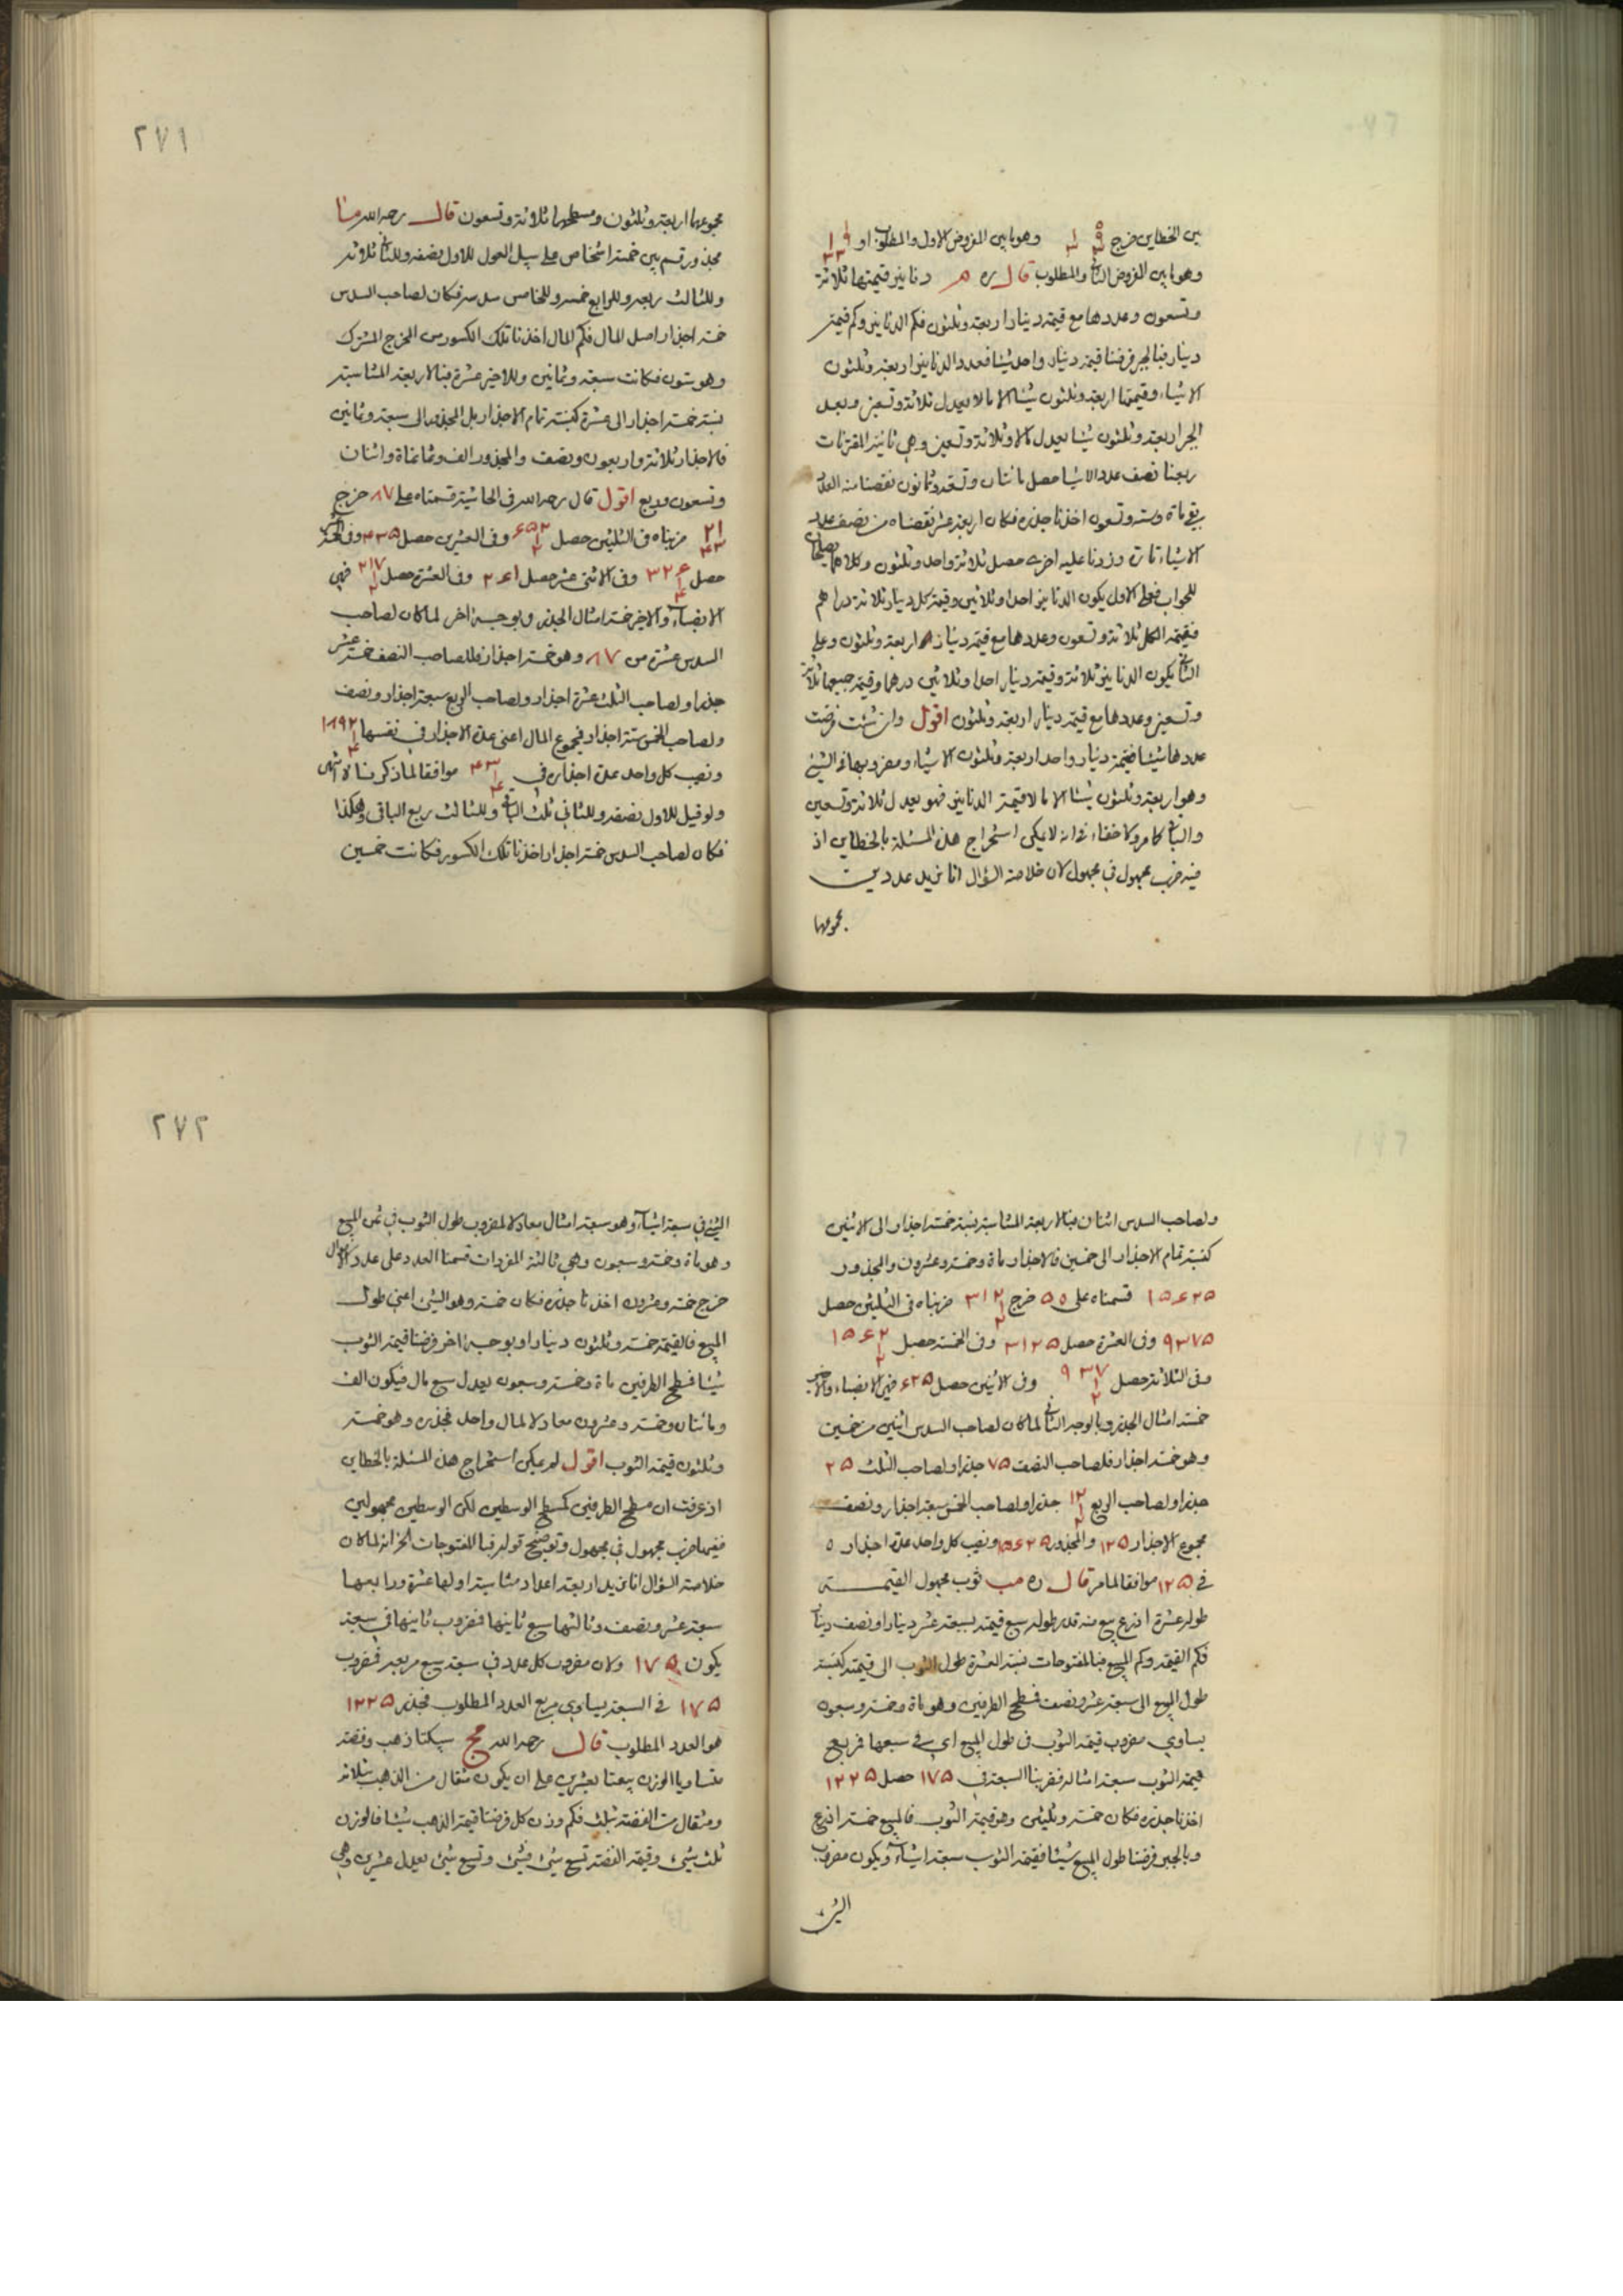 بين الخطاين خرج وهو ما بين المفروض الاول والمطلوب او
وهو ما بين المفروض الثاني والمطلوب قال ره م دنانير قيمتها ثلاثة
وتسعون وعددها مع قيمة دينار اربعة وثلثون فكم الدنانير وكم قيمة
دينار فبالجبر فرضنا قيمة دينار واحد شيئا فعدد الدنانير اربعة وثلثون
الا شيئا وقيمتها اربعة وثلثون شيئا الا مالا يعدل ثلاثة وتسعين وبعد
الجبر اربعة وثلثون شيئا يعدل مالا وثلاثة وتسعين وهي ثانية المقترنات
ربعنا نصف عدد الاشيا حصل مائتان وتسعة وثمانون نقصنا منه العدد
بقي ماة وستة وتسعون اخذنا جذره فكان اربعة عشر نقصناه من نصف عدد
الاشياء تارة وزدنا عليه اخرى حصل ثلاثة واحد وثلثون وكلاهما يصلحان
للجواب فعلى الاول يكون الدنانير احدا وثلاثين وقيمة كل دينار ثلاثة دراهم
فقيمة الكل ثلاثة وتسعون وعددها مع قيمة دينار اربعة وثلثون وعلى
الثاني يكون الدنانير ثلاثة وقيمة دينار احدا وثلاثين درهما وقيمة جميعها ثلاثة
وتسعين وعددها مع قيمة دينار اربعة وثلثون اقول وان شئت فرضت
عددها شيئا فقيمة دينار واحد اربعة وثلثون الا شيئا ومضروبهما في الشيئ
وهو اربعة وثلثون شيئا الا مالا قيمة الدنانير فهو يعدل ثلاثة وتسعين
والباقي كما مر ولا خفاء في انه لا يمكن استخراج هذه المسئلة بالخطاين اذ
فيه ضرب مجهول في مجهول لان خلاصة السؤال انا نريد عددين
مجموعها
٢٧١
مجموعها اربعة وثلثون ومسطحها ثلاثة وتسعون قال رحمه الله ما
مجذور قسم بين خمسة اشخاص على سبيل العول للاول نصفه وللثاني ثلاثه
وللثالث ربعه وللرابع خمسه وللخامس سدسه فكان لصاحب السدس
خمسة اجذار اصل المال فكم المال اخذنا تلك الكسور من المخرج المشترك
وهو ستون فكانت سبعة وثمانين وللاخير عشرة فبالاربعة المتناسبة
نسبة خمسة اجذار الى عشرة كنسبة تمام الاجذار بل المجذور الى سبعة وثمانين
فالاجذار ثلاثة واربعون ونصف والمجذور الف وثمانماة واثنان
وتسعون وربع اقول قال رحمه الله في الحاشية قسمناه على ٨٧ خرج
ضربناه في الثلثين حصل وفي العشرين حصل ٤٣٥ وفي
حصل وفي الاثنى عشر حصل ٢٦١ وفي العشرة حصل فهي
الانصباء والاخير خمسة امثال الجذر وبوجه اخر لما كان لصاحب
السدس عشرة من ٨٧ وهو خمسة اجذار فلصاحب النصف خمسة عشر
جذرا ولصاحب الثلث عشرة اجذار ولصاحب الربع سبعة اجذار ونصف
ولصاحب الخمس ستة اجذار فمجموع المال اعني عدة الاجذار في نفسها
ونصيب كل واحد عدة اجذاره في موافقا لما ذكرنا لا انتهى
ولو قيل للاول نصفه وللثاني ثلث الباقي وللثالث ربع الباقي وهكذا
فكان لصاحب السدس خمسة اجذار اخذنا تلك الكسور فكانت خمسين
ولصاحب السدس اثنان فبالاربعة المتناسبة نسبة خمسة اجذار الى الاثنين
كنسبة تمام الاجذار الى خمسين فالاجذار ماة وخمسة وعشرون والمجذور
١٥٦٢٥ قسمناه على ٥٠ خرج ضربناه في الثلثين حصل
٩٣٧٥ وفي العشرة حصل ٣١٢٥ وفي الخمسة حصل
وفي الثلاثة حصل وفي الاثنين حصل ٦٢٥ فهي الانصباء والاخير
خمسة امثال الجذر وبالوجه الثاني لما كان لصاحب السدس اثنين من خمسين
وهو خمسة اجذار فلصاحب النصف ٧٥ جذرا ولصاحب الثلث ٢٥
جذرا ولصاحب الربع جذرا ولصاحب الخمس سبعة اجذار ونصف
مجموع الاجذار ١٢٥ والمجذور ١٥٦٢٥ ونصيب كل واحد عدة اجذار ٥
في ١٢٥ موافقا لما مر قال ره مب ثوب مجهول القيمة
طوله عشرة اذرع بيع منه قدر طوله سبع قيمته بسبعة عشر دينارا ونصف دينار
فكم القيمة وكم المبيع فبالمفتوحات نسبة العشرة طول الثوب الى قيمته كنسبة
طول المبيع الى سبعة عشر ونصف فسطح الطرفين وهو ماة وخمسة وسبعون
يساوي مضروب قيمة الثوب في طول المبيع اي في سبعها فمربع
قيمة الثوب سبعة امثاله فضربنا السبعة في ١٧٥ حصل ١٢٢٥
اخذنا جذره فكان خمسة وثلثين وهو قيمة الثوب فالمبيع خمسة اذرع
وبالجبر فرضنا طول المبيع شيئا فقيمة الثوب سبعة اشياء ويكون مضروب
الشئ
٢٧٢
الشئ في سبعة اشياء وهو سبعة امثال معادلا لمضروب طول الثوب في ثمن المبيع
وهو ماة وخمسة وسبعون وهي ثالثة المفردات قسمنا العدد على عدد الاموال
خرج خمسة وعشرون اخذنا جذره فكان خمسة وهو الشئ اعني طول
المبيع فالقيمة خمسة وثلثون دينارا وبوجه اخر فرضنا قيمة الثوب
شيئا فسطح الطرفين ماة وخمسة وسبعون يعدل سبع مال فيكون الف
ومائتان وخمسة وعشرون معادلا لمال واحد فجذره وهو خمسة
وثلثون قيمة الثوب اقول لم يمكن استخراج هذه المسئلة بالخطاين
اذ عرفت ان مسطح الطرفين كمسطح الوسطين لكن الوسطين مجهولين
ففيهما ضرب مجهول في مجهول وتوضيح قوله فبالمفتوحات الخ انه لما كان
خلاصة السؤال انا نريد اربعة اعداد متناسبة اولها عشرة ورابعها
سبعة عشر ونصف وثالثها سبع ثانيها فمضروب ثانيها في سبعه
يكون ١٧٥ ولان مضروب كل عدد في سبعه سبع مربعه فمضروب
١٧٥ في السبعة يساوي مربع العدد المطلوب فجذر ١٢٢٥
هو العدد المطلوب قال رحمه الله مج سبيكتا ذهب وفضة
متساويا الوزن بيعتا بعشرين على ان يكون مثقال من الذهب بثلاثة
ومثقال من الفضة بثلث فكم وزن كل فرضنا قيمة الذهب شيئا فالوزن
ثلث شئ وقيمة الفضة تسع شئ فشئ وتسع شئ يعدل عشرين وهي